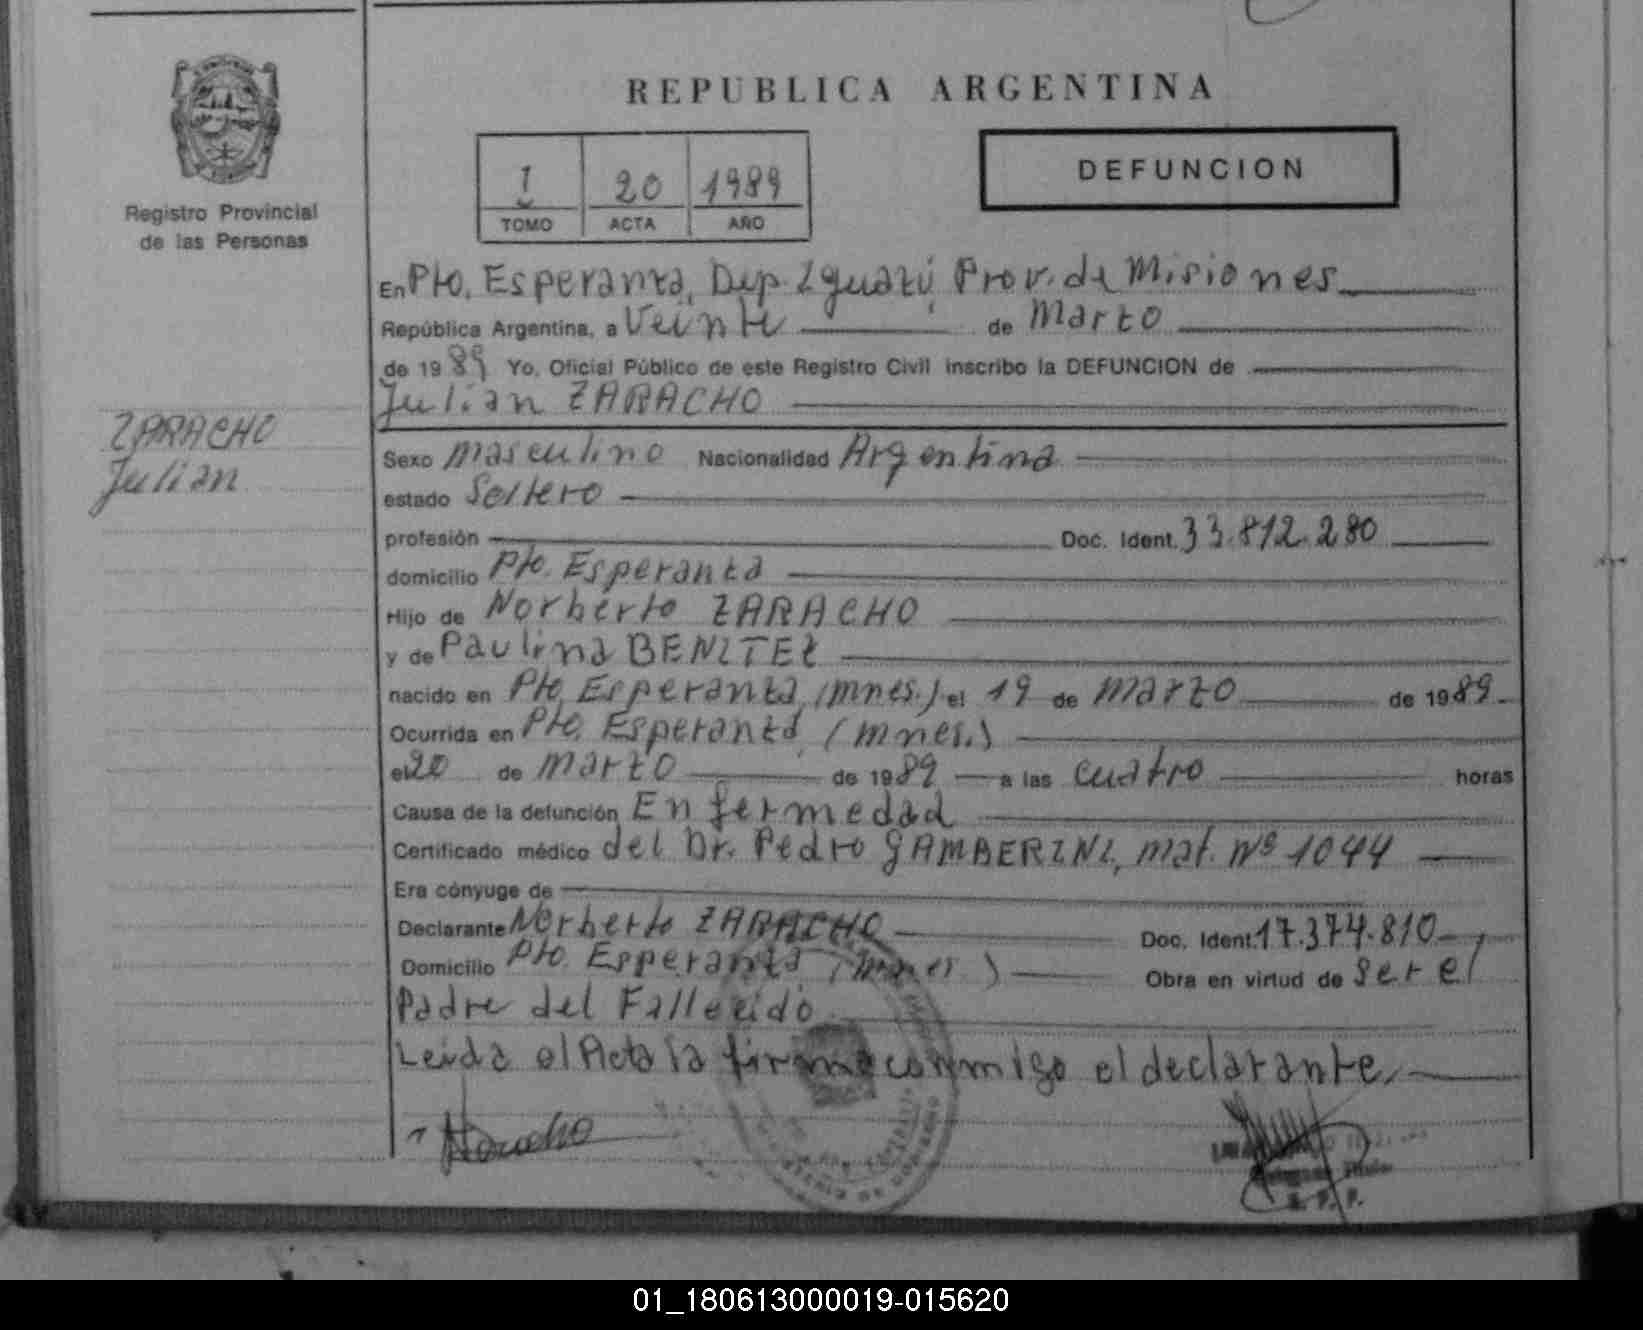 REPUBLICA ARGENTINA
I 20 1989
TOMO ACTA AÑO
DEFUNCION
Registro Provincial
de las Personas
ZARACHO
Julian
En Pto. Esperanza, Dep. Iguazú Prov. de Misiones
República Argentina, a Veinte de Marzo
de 1989 Yo, Oficial Público de este Registro Civil inscribo la DEFUNCION de
Julian ZARACHO
Sexo masculino Nacionalidad Argentina
estado Soltero
profesión Doc. Ident. 33.812.280
domicilio Pto. Esperanza
Hijo de Norberto ZARACHO
y de Paulina BENITEZ
nacido en Pto. Esperanza, (mnes.) el 19 de Marzo de 1989
Ocurrida en Pto. Esperanza, (mnes.)
el 20 de Marzo de 1989 a las cuatro horas
Causa de la defunción Enfermedad
Certificado médico del Dr. Pedro GAMBERINI, mat. Nº 1044
Era cónyuge de
Declarante Norberto ZARACHO Doc. Ident. 17.374.810
Domicilio Pto. Esperanza (mnes) Obra en virtud de Ser el
Padre del Fallecido
Leida el Acta la firma conmigo el declarante
01_180613000019-015620